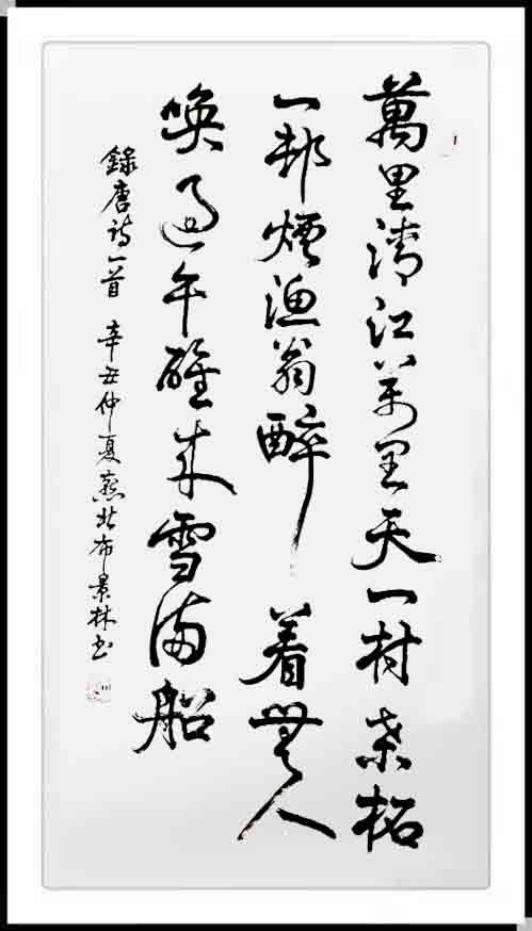 萬里清江萬里天一村桑柘
一邨煙渔翁醉着無人
喚過午醒来雪滿船
錄唐詩一首 辛丑仲夏燕北布景林书